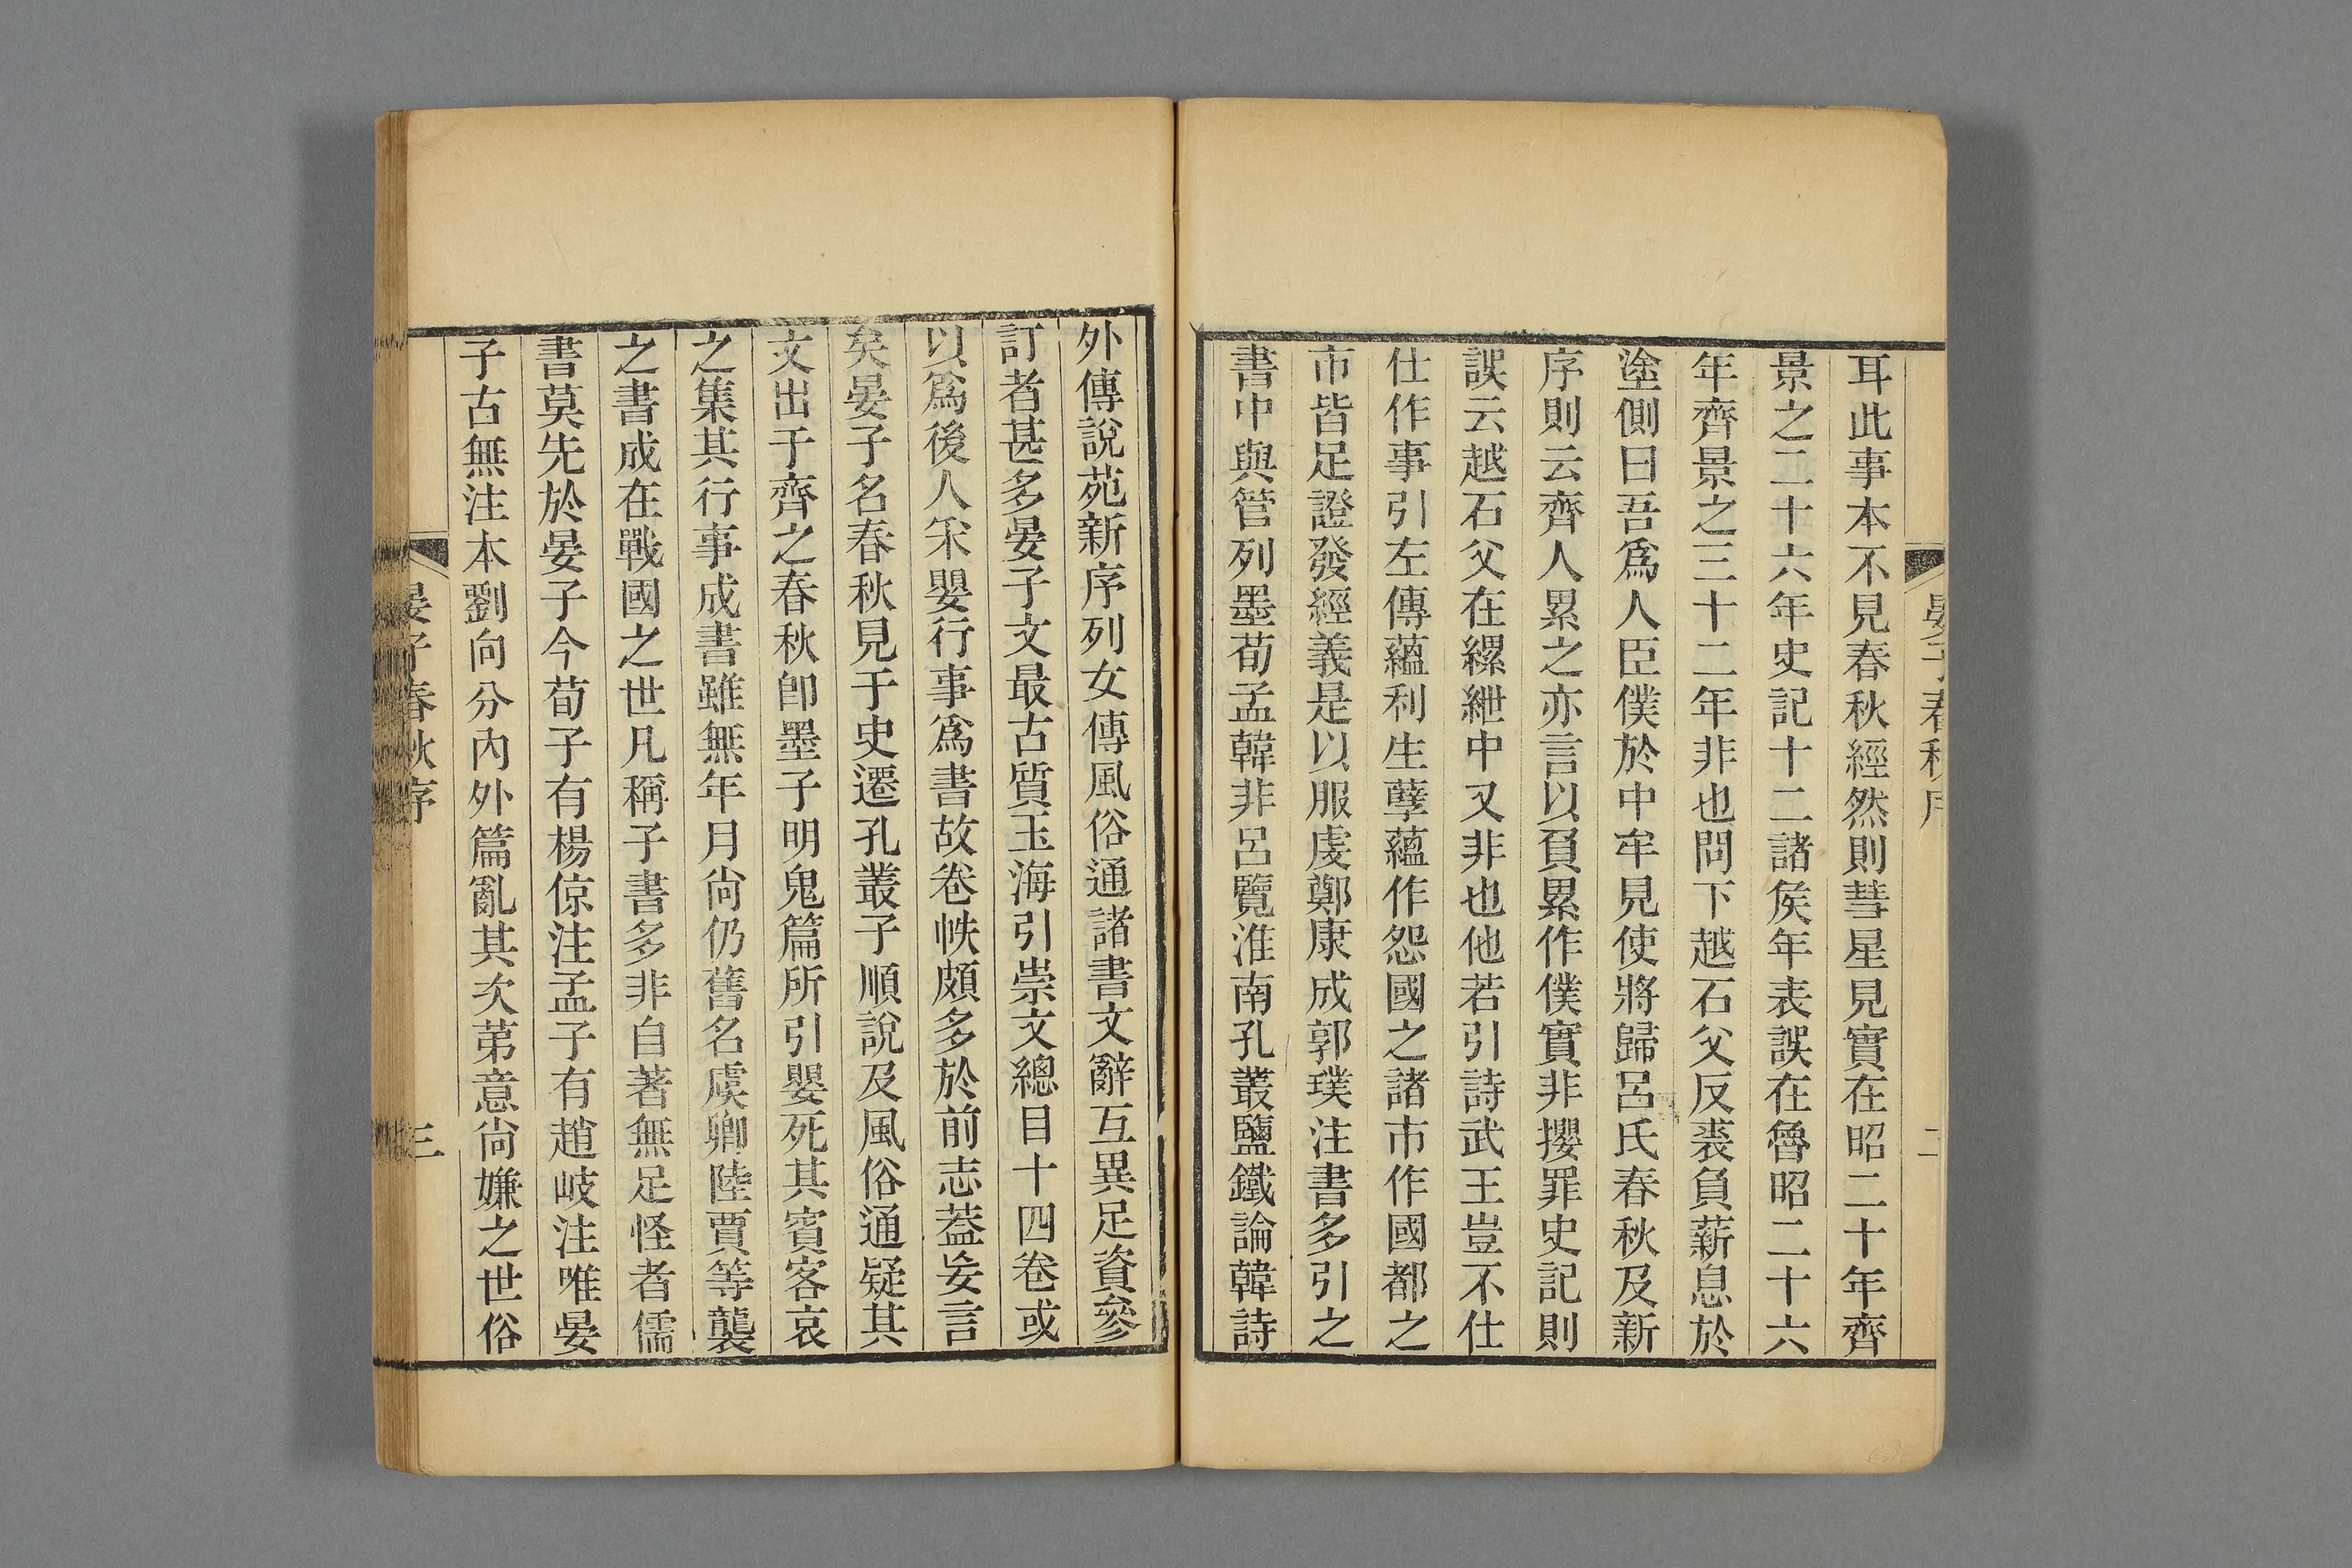 晏子春秋序
二
耳此事本不見春秋經然則彗星見實在昭二十年齊
景之二十六年史記十二諸侯年表誤在魯昭二十六
年齊景之三十二年非也問下越石父反裘負薪息於
塗側曰吾爲人臣僕於中牟見使將歸呂氏春秋及新
序則云齊人累之亦言以負累作僕實非攖罪史記則
誤云越石父在縲紲中又非也他若引詩武王豈不仕
仕作事引左傳蘊利生孽蘊作怨國之諸市作國都之
市皆足證發經義是以服虔鄭康成郭璞注書多引之
書中與管列墨荀孟韓非呂覽淮南孔叢鹽鐵論韓詩
外傳說苑新序列女傳風俗通諸書文辭互異足資參
訂者甚多晏子文最古質玉海引崇文總目十四卷或
以爲後人采嬰行事爲書故卷帙頗多於前志蓋妄言
矣晏子名春秋見于史遷孔叢子順說及風俗通疑其
文出于齊之春秋卽墨子明鬼篇所引嬰死其賓客哀
之集其行事成書雖無年月尙仍舊名虞卿陸賈等襲
之書成在戰國之世凡稱子書多非自著無足怪者儒
書莫先於晏子今荀子有楊倞注孟子有趙岐注唯晏
子古無注本劉向分內外篇亂其次弟意尙嫌之世俗
晏子春秋序
三